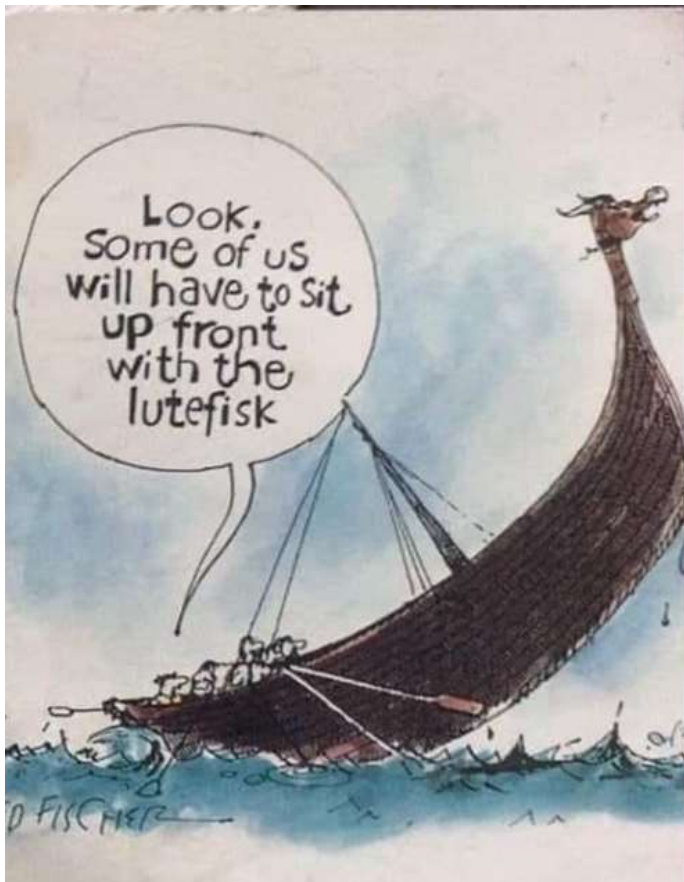 Look,
some of us
will have to sit
up front
with the
lutefisk
D FISCHER